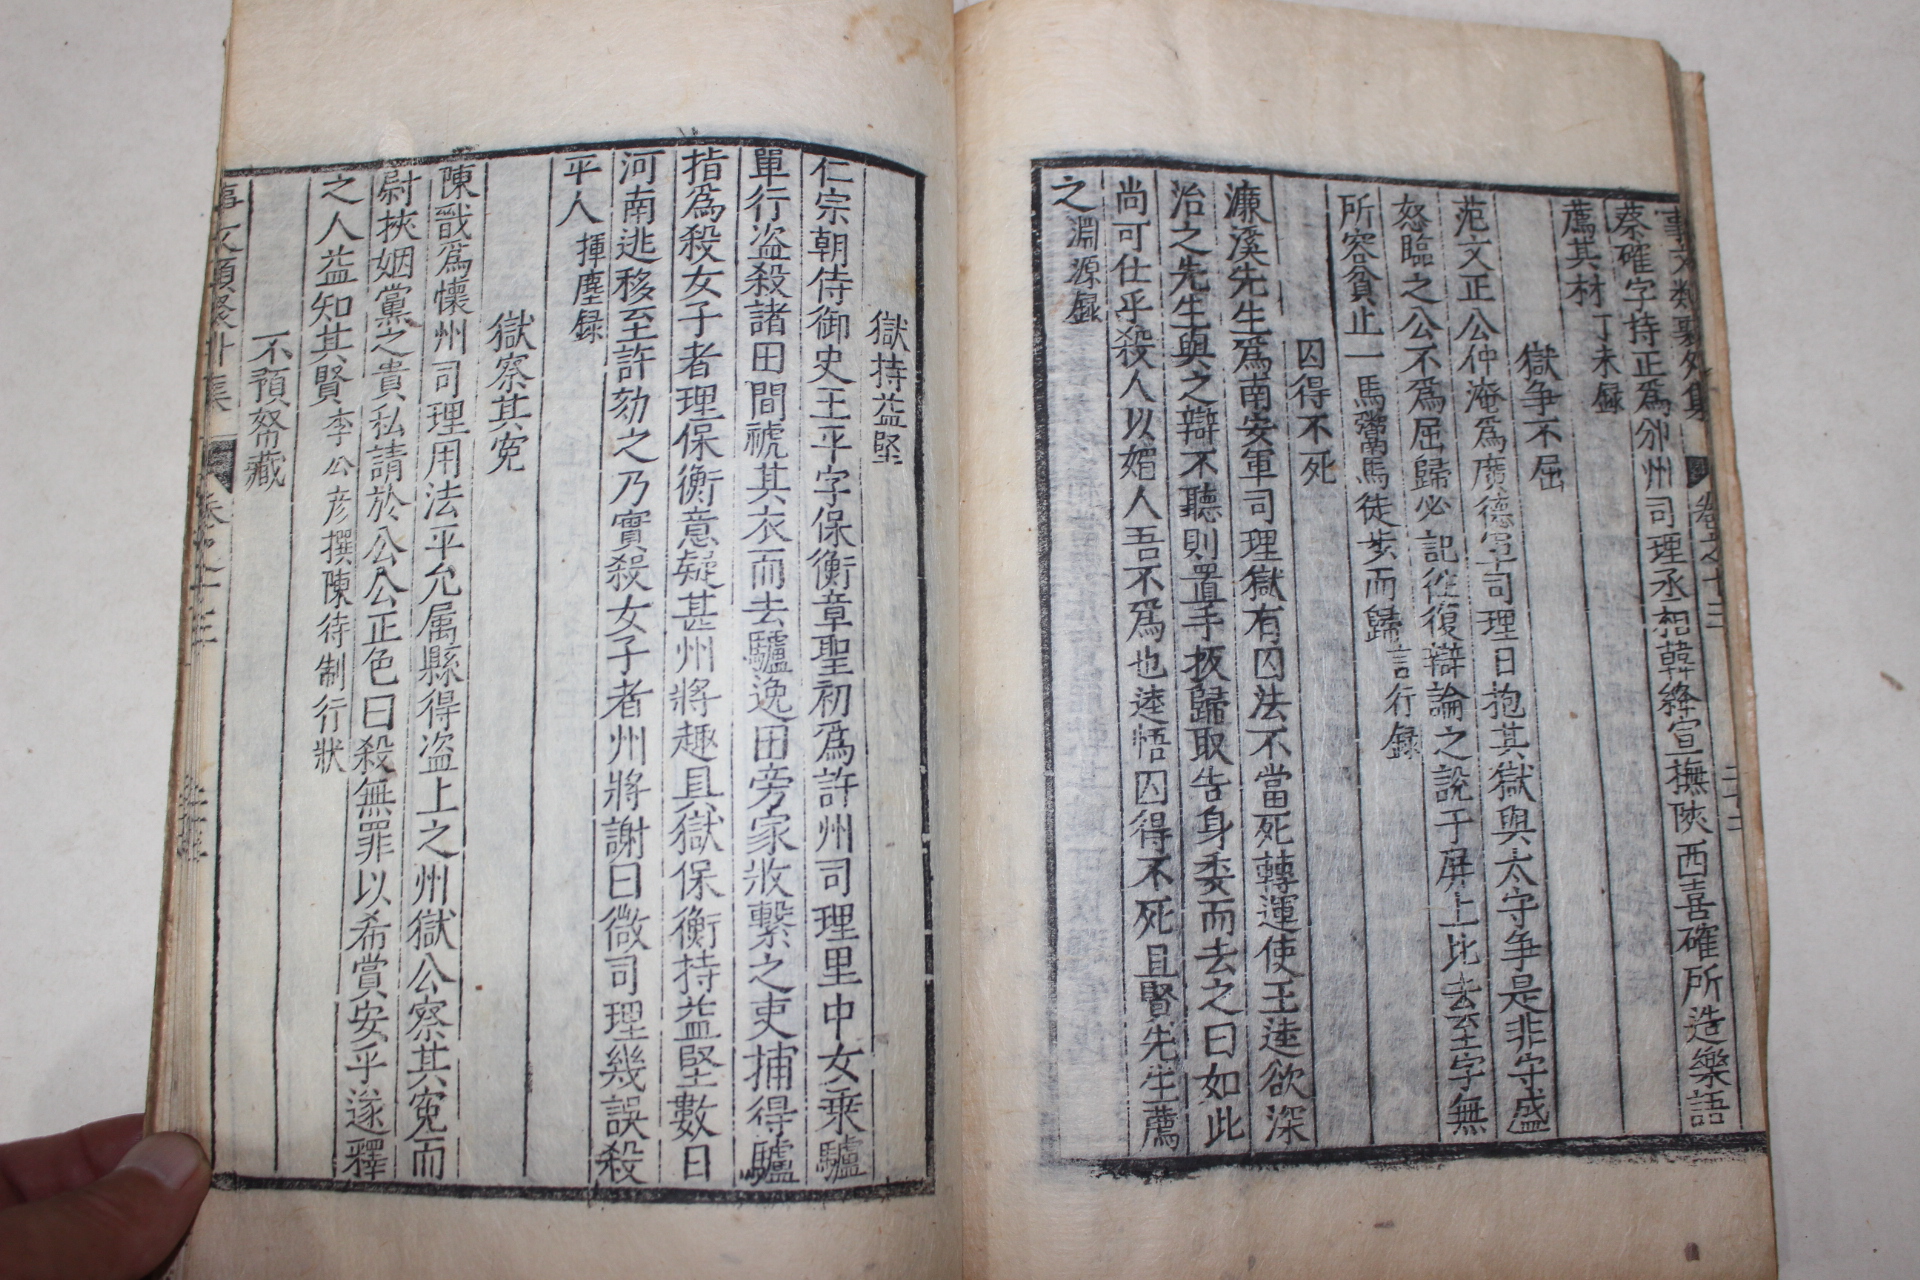 事文類聚外集 卷之十三
蔡確字持正爲邠州司理丞相韓絳宣撫陝西喜確所造樂語
薦其材丁未録
獄争不屈
范文正公仲淹爲廣德軍司理日抱其獄與太守争是非守盛
怒臨之公不爲屈歸必記徃復辯論之說于屏上比去至字無
所容貧止一馬鬻馬徒步而歸言行録
囚得不死
濂溪先生爲南安軍司理獄有囚法不當死轉運使王逵欲深
治之先生與之辯不聽則置手板歸取告身委而去之曰如此
尚可仕乎殺人以媚人吾不爲也逵悟囚得不死且賢先生薦
之淵源録
獄持益堅
仁宗朝侍御史王平字保衡章聖初爲許州司理里中女乗驢
單行盗殺諸田間褫其衣而去驢逸田旁家收繫之吏捕得驢
指爲殺女子者理保衡意疑甚州將趣具獄保衡持益堅數日
河南逃移至許劾之乃實殺女子者州將謝曰微司理幾誤殺
平人揮塵録
獄察其寃
陳戩爲懷州司理用法平允属縣得盗上之州獄公察其寃而
尉挾姻黨之貴私請於公公正色曰殺無罪以希賞安乎遂釋
之人益知其賢李公彦撰陳待制行狀
不預帑藏